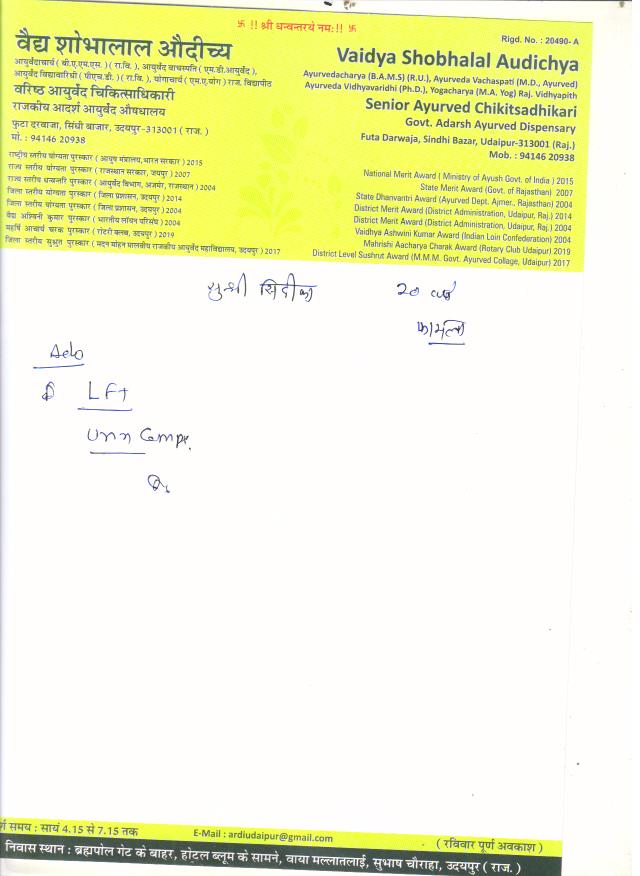 卐 !! श्री धन्वन्तरये नमः!! 卐
Rigd. No. : 20490- A
वैद्य शोभालाल औदीच्य
आयुर्वेदाचार्य ( बी.ए.एम.एस. )( रा.वि. ), आयुर्वेद वाचस्पति ( एम.डी.आयुर्वेद ),
आयुर्वेद विद्यावारिधी ( पीएच.डी. ) ( रा.वि. ), योगाचार्य ( एम.ए.योग ) राज. विद्यापीठ
वरिष्ठ आयुर्वेद चिकित्साधिकारी
राजकीय आदर्श आयुर्वेद औषधालय
फुटा दरवाजा, सिंधी बाजार, उदयपुर-313001 ( राज. )
मो. : 94146 20938
Vaidya Shobhalal Audichya
Ayurvedacharya (B.A.M.S) (R.U.), Ayurveda Vachaspati (M.D., Ayurved)
Ayurveda Vidhyavaridhi (Ph.D.), Yogacharya (M.A. Yog) Raj. Vidhyapith
Senior Ayurved Chikitsadhikari
Govt. Adarsh Ayurved Dispensary
Futa Darwaja, Sindhi Bazar, Udaipur-313001 (Raj.)
Mob. : 94146 20938
राष्ट्रीय स्तरीय योग्यता पुरस्कार ( आयुष मंत्रालय, भारत सरकार ) 2015
राज्य स्तरीय योग्यता पुरस्कार ( राजस्थान सरकार, जयपुर ) 2007
राज्य स्तरीय धन्वन्तरि पुरस्कार ( आयुर्वेद विभाग, अजमेर, राजस्थान ) 2004
जिला स्तरीय योग्यता पुरस्कार ( जिला प्रशासन, उदयपुर ) 2014
जिला स्तरीय योग्यता पुरस्कार ( जिला प्रशासन, उदयपुर ) 2004
वैद्य अश्विनी कुमार पुरस्कार ( भारतीय लॉयन परिसंघ ) 2004
महर्षि आचार्य चरक पुरस्कार ( रोटरी क्लब, उदयपुर ) 2019
जिला स्तरीय सुश्रुत पुरस्कार ( मदन मोहन मालवीय राजकीय आयुर्वेद महाविद्यालय, उदयपुर ) 2017
National Merit Award ( Ministry of Ayush Govt. of India ) 2015
State Merit Award (Govt. of Rajasthan) 2007
State Dhanvantri Award (Ayurved Dept. Ajmer., Rajasthan) 2004
District Merit Award (District Administration, Udaipur, Raj.) 2014
District Merit Award (District Administration, Udaipur, Raj.) 2004
Vaidhya Ashwini Kumar Award (Indian Loin Confederation) 2004
Mahrishi Aacharya Charak Award (Rotary Club Udaipur) 2019
District Level Sushrut Award (M.M.M. Govt. Ayurved Collage, Udaipur) 2017
सुश्री सिदीका 20 वर्ष
कामला
LFT
समय : सायं 4.15 से 7.15 तक
E-Mail : ardiudaipur@gmail.com
( रविवार पूर्ण अवकाश )
निवास स्थान : ब्रह्मपोल गेट के बाहर, होटल ब्लूम के सामने, वाया मल्लातलाई, सुभाष चौराहा, उदयपुर ( राज. )